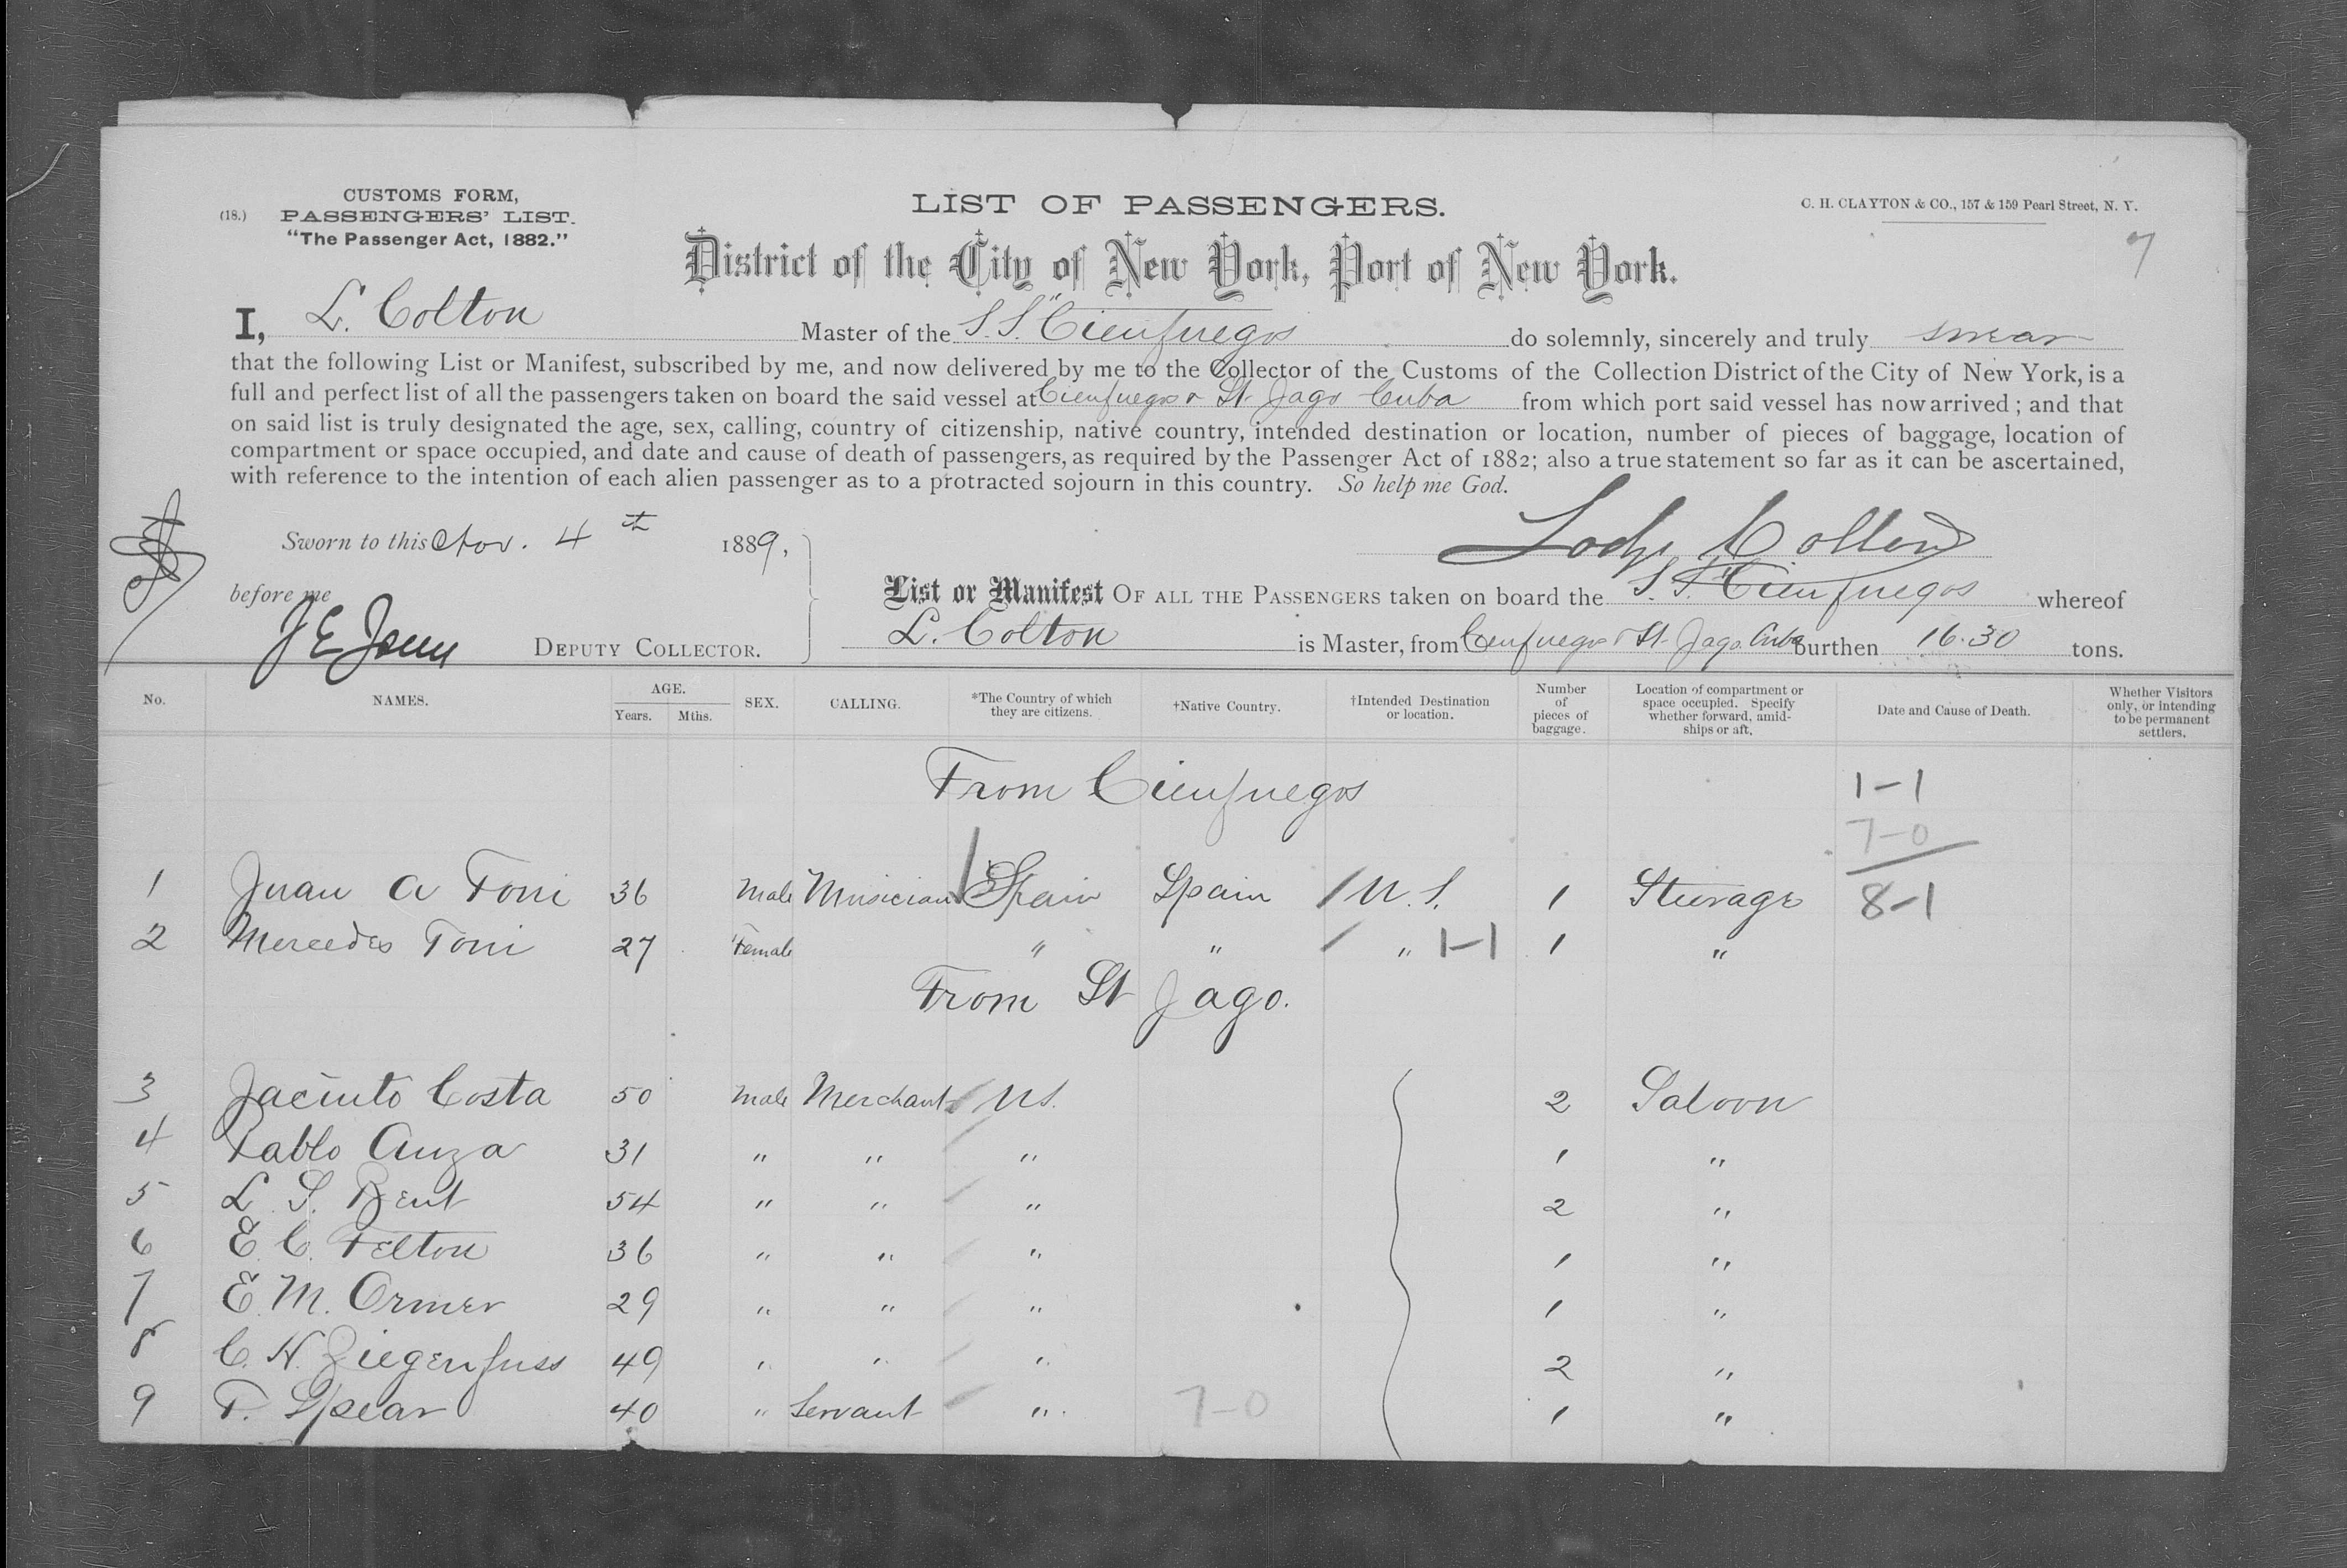 CUSTOMS FORM,
(18.) PASSENGERS' LIST.
"The Passenger Act, 1882."
LIST OF PASSENGERS.
C. H. CLAYTON & CO., 157 & 159 Pearl Street, N. Y.
7
District of the City of New York, Port of New York.
I, L. Colton Master of the S.S. "Cienfuegos do solemnly, sincerely and truly swear
that the following List or Manifest, subscribed by me, and now delivered by me to the Collector of the Customs of the Collection District of the City of New York, is a
full and perfect list of all the passengers taken on board the said vessel at Cienfuegos & St Jago Cuba from which port said vessel has now arrived; and that
on said list is truly designated the age, sex, calling, country of citizenship, native country, intended destination or location, number of pieces of baggage, location of
compartment or space occupied, and date and cause of death of passengers, as required by the Passenger Act of 1882; also a true statement so far as it can be ascertained,
with reference to the intention of each alien passenger as to a protracted sojourn in this country. So help me God.
Sworn to this Nov. 4th 1889,
Colton
before me
List or Manifest OF ALL THE PASSENGERS taken on board the S.S. "Cienfuegos whereof
J E DEPUTY COLLECTOR.
L. Colton is Master, from Cienfuegos & St Jago Cuba burthen 16.30 tons.
No. NAMES. AGE. Years. Mths. SEX. CALLING. *The Country of which they are citizens. †Native Country. †Intended Destination or location. Number of pieces of baggage. Location of compartment or space occupied. Specify whether forward, amidships or aft. Date and Cause of Death. Whether Visitors only, or intending to be permanent settlers.
From Cienfuegos 1-1
7-0
1 Juan A Toni 36 Male Musician Spain Spain / U.S. 1 Steerage 8-1
2 Mercedes Toni 27 Female " " / " 1-1 1 "
From St Jago.
3 Jacinto Costa 50 Male Merchant U.S. 2 Saloon
4 Pablo Anza 31 " " " 1 "
5 L. S. Bent 54 " " " 2 "
6 E. C. Felton 36 " " " 1 "
7 E. M. Ormer 29 " " " 1 "
8 C. H. Ziegenfuss 49 " " " 2 "
9 T. Spear 40 " Servant " 7-0 1 "